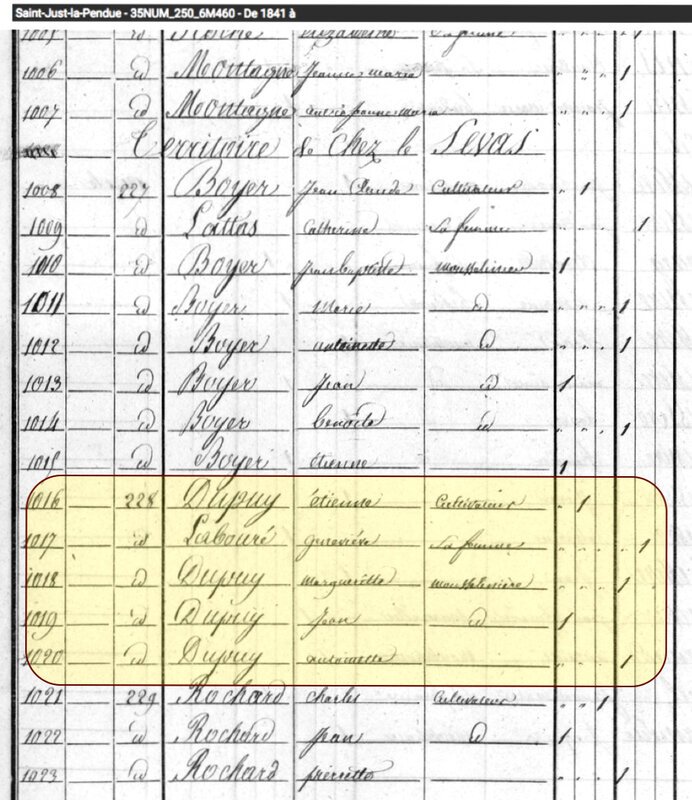 Saint-Just-la-Pendue - 35NUM_250_6M460 - De 1841 à
1005 id
1006 id Montagne Jeanne marie 1
1007 id Montagne Jeanne Marie 1
Territoire de Chez le Levas
1008 227 Boyer Jean Claude Cultivateur 1
1009 id Lattas Catherine Sa femme 1
1010 id Boyer Jean baptiste mousselinier 1
1011 id Boyer Marie id 1
1012 id Boyer antoinette id 1
1013 id Boyer Jean id 1
1014 id Boyer benoite id 1
1015 id Boyer étienne 1
1016 228 Dupuy étienne Cultivateur 1
1017 id Labouré geneviève Sa femme 1
1018 id Dupuy margueritte mousselinière 1
1019 id Dupuy Jean id 1
1020 id Dupuy antoinette 1
1021 229 Rochard Charles Cultivateur 1
1022 id Rochard Jean id 1
1023 id Rochard pierrette 1